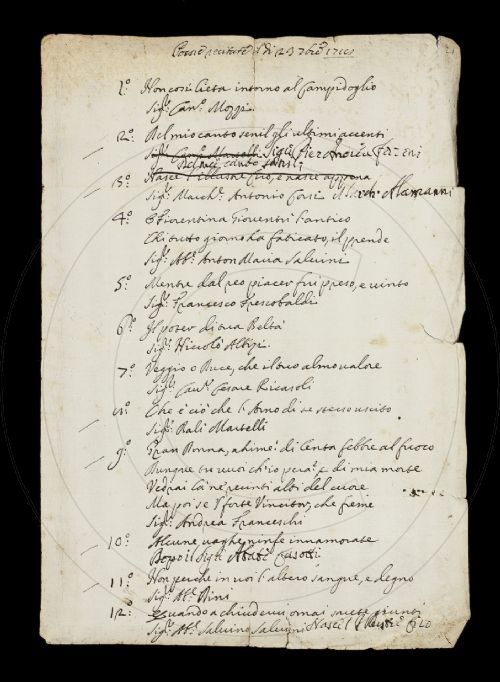 Poesie recitate il dì 23 7bre
1° Non così lieta intorno al Campidoglio
Sigr. Cano. Mozzi
2° Del mio canto senil gli ultimi accenti
Sigr. Pier Andrea
Del mio canto senil
3° Nasce l'Illustre e nasce appena
Sigr. March. Antonio Corsi Alamanni
4° O Fiorentina Gioventù l'antico
Chi tutto giorno ha faticato, il prende
Sigr. Ab. Anton Maria Salvini
5° Mentre dal reo piacer fui preso, e vinto
Sigr. Francesco Frescobaldi
6° Il poter di tua Beltà
Sigr. Niccolò Albizi
7° Veggio o Duce, che il tuo almo valore
Sigr. Cavr. Cesare Ricasoli
8° Che è ciò che l'Arno di se stesso uscito
Sigr. Balì Martelli
9° Gran Donna, ahimè! di lenta febbre al fuoco
Dunque tu vuoi ch'io pera, e di mia morte
Vedrai là ne recinti alti del cuore
Ma poi se 'l forte Vincitor, che freme
Sigr. Andrea Franceschi
10° Alcune vaghe ninfe innamorate
Dopo il Sigr. Abate Casotti
11° Non perché in voi l'altero sangue, e degno
Sigr. Ab. Pini
12° Quando a chiudervi omai siete giunti
Sigr. Ab. Salvino Salvini Nasce l'Illustre